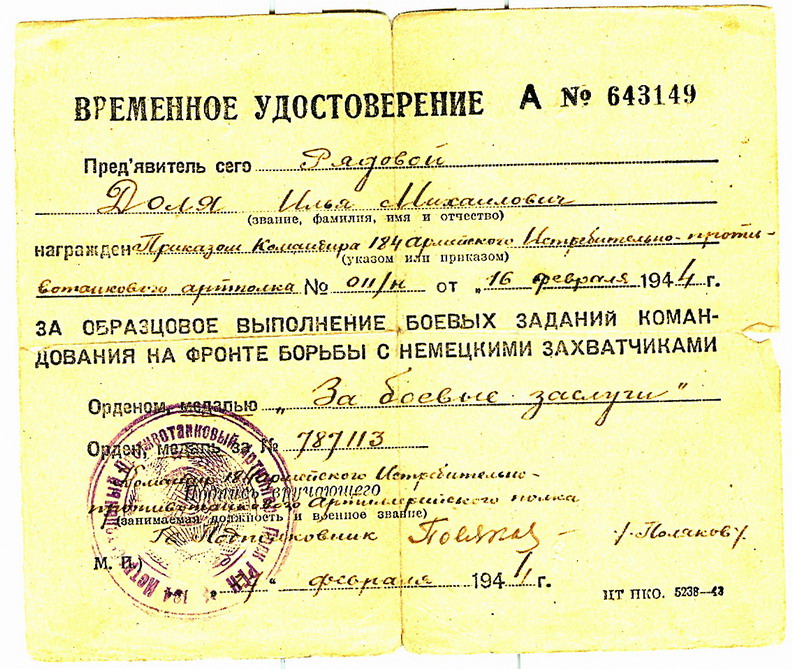 ВРЕМЕННОЕ УДОСТОВЕРЕНИЕ А № 643149
Пред'явитель сего Рядовой
Доля Илья Михаилович
(звание, фамилия, имя и отчество)
награжден Приказом Командира 184 Армейского Истребительно-проти-
(указом или приказом)
вотанкового артполка № 011/н от „16 февраля 1944 г.
ЗА ОБРАЗЦОВОЕ ВЫПОЛНЕНИЕ БОЕВЫХ ЗАДАНИЙ КОМАН-
ДОВАНИЯ НА ФРОНТЕ БОРЬБЫ С НЕМЕЦКИМИ ЗАХВАТЧИКАМИ
Орденом, медалью „За боевые заслуги"
Орден, медаль за № 787113
Командир 184 Армейского Истребительно-
Подпись вручающего
противотанкового Артиллерийского полка
(занимаемая должность и военное звание)
Подполковник /Поляков/
М. П.
февраля 1944 г.
ЦТ ПКО. 5238—43